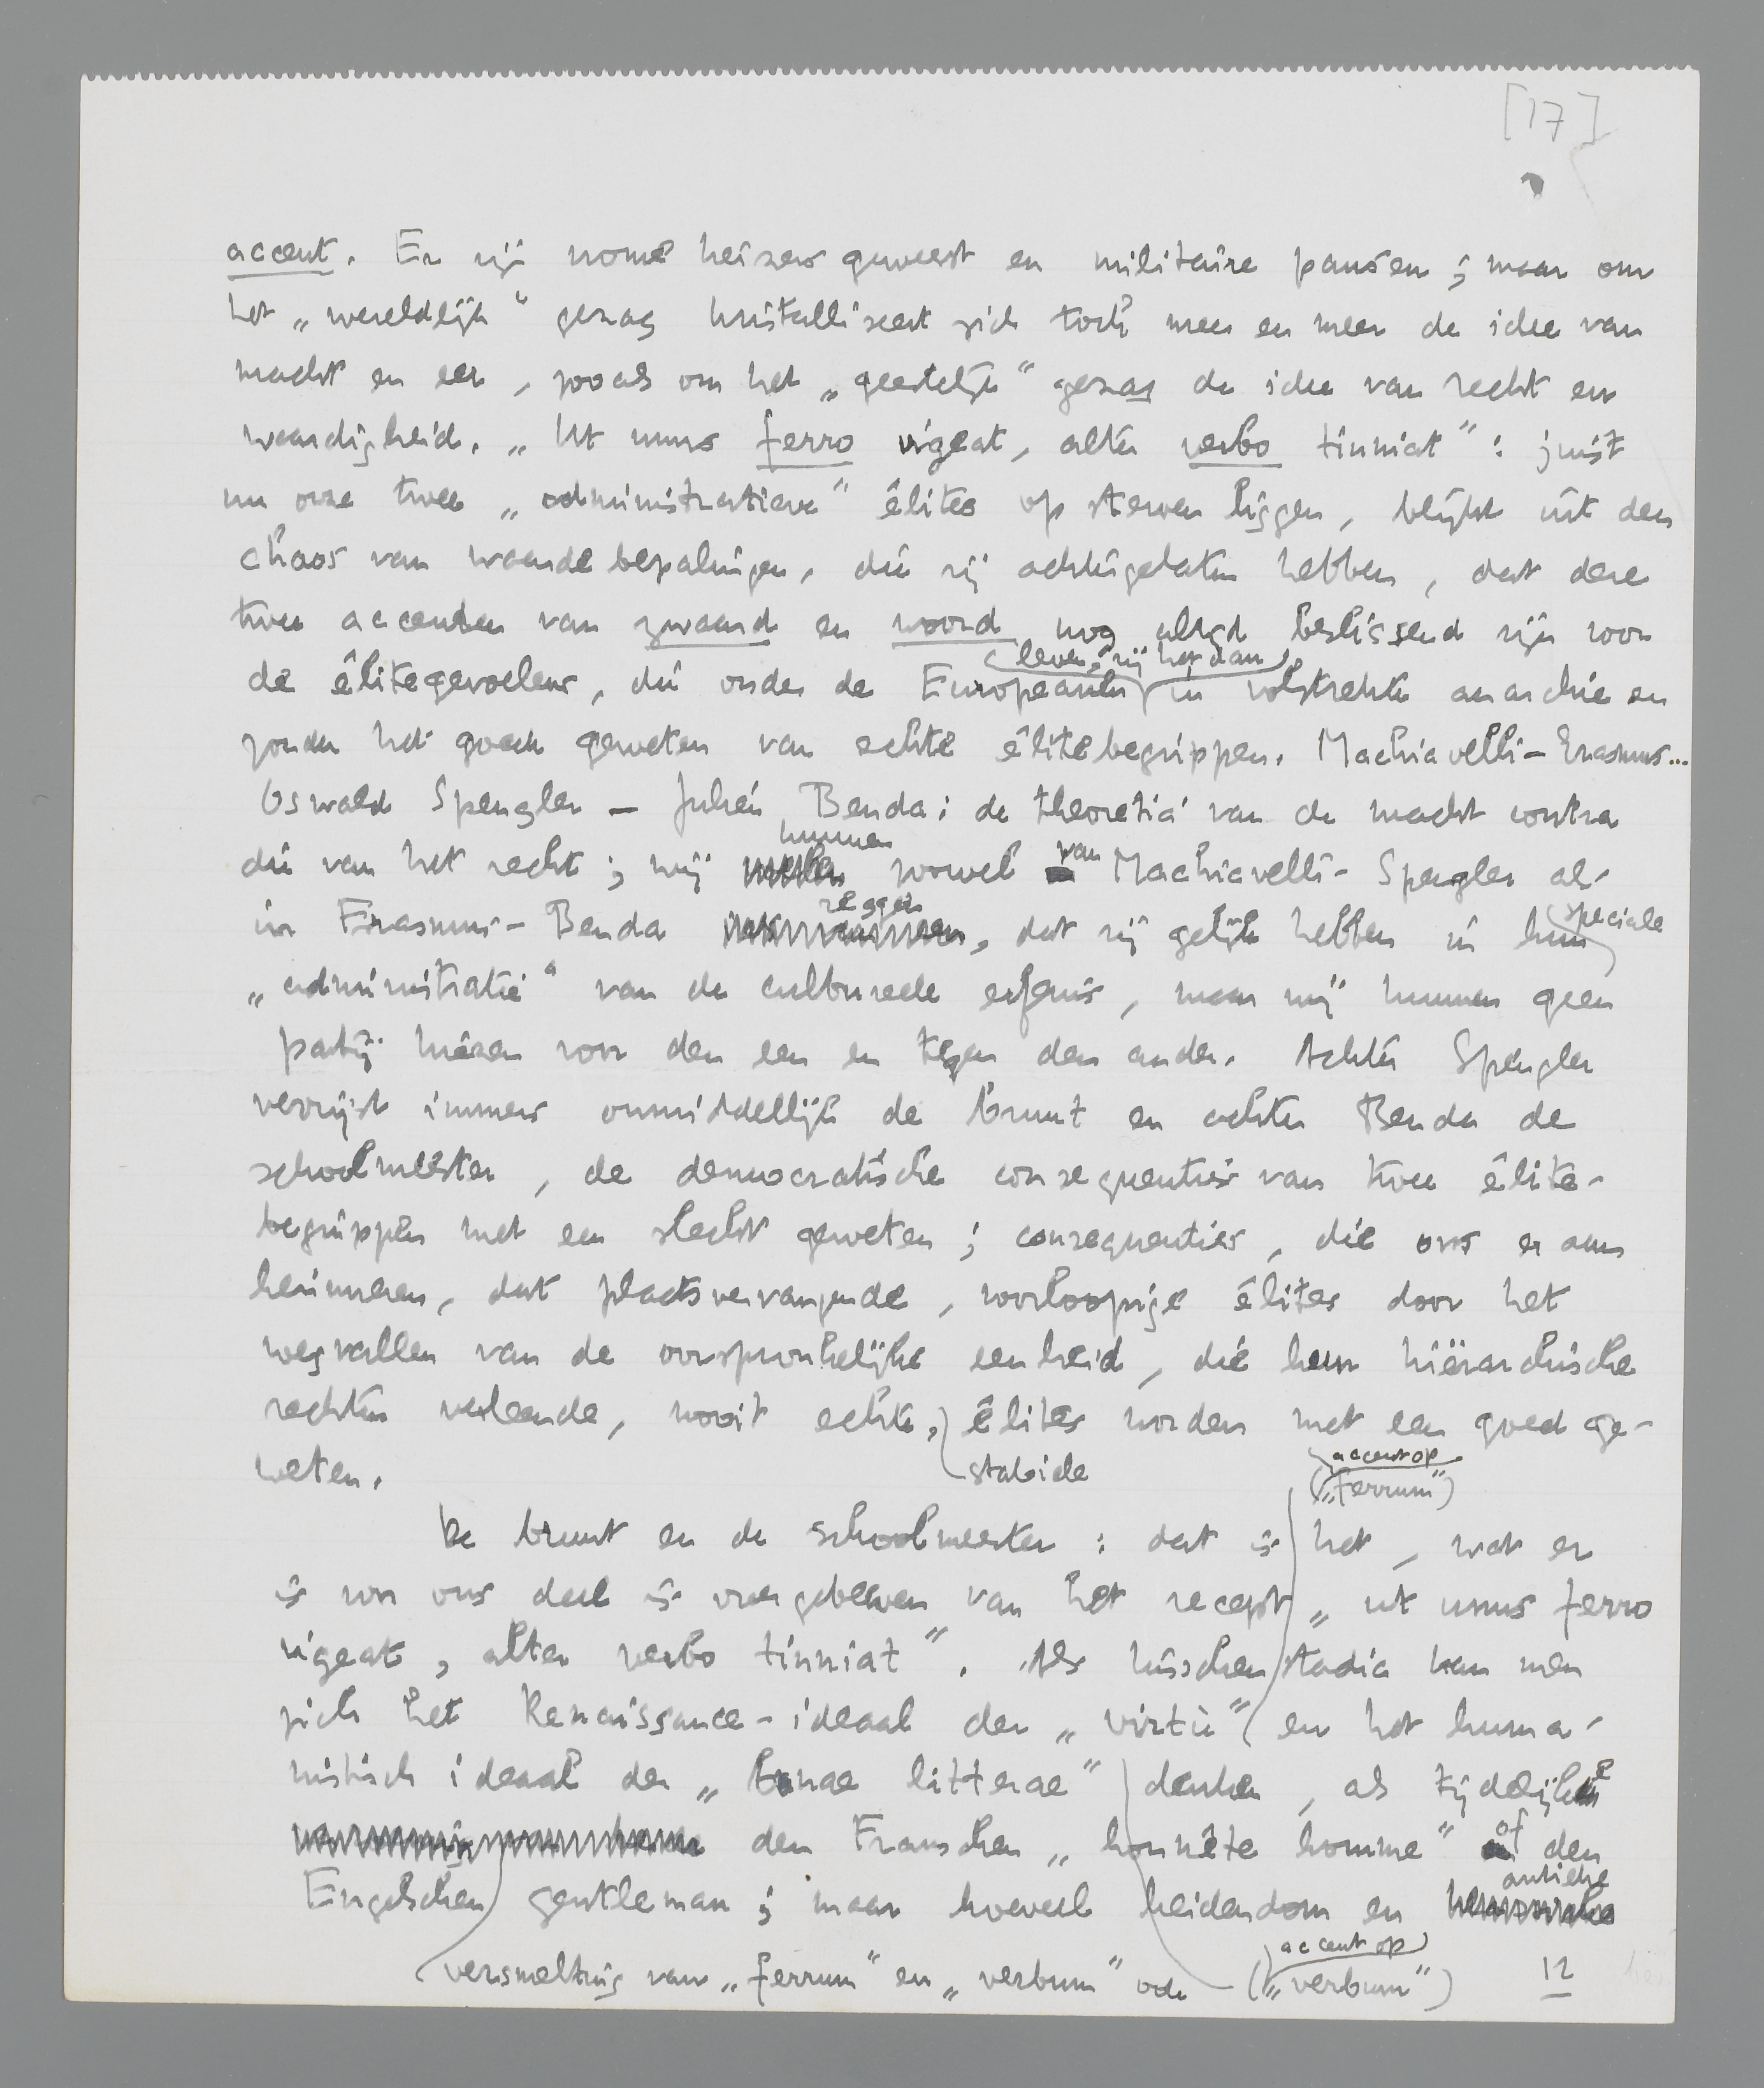 [17]
accent. Er zijn vrome keizers geweest en militaire pausen; maar om
het „wereldlijk" gezag kristalliseert zich toch meer en meer de idee van
macht en eer, zooals om het „geestelijk" gezag de idee van recht en
waardigheid. „Ut unus ferro vigeat, alter verbo tinniat": juist
nu onze twee „administratieve" élites op sterven liggen, blijkt uit den
chaos van waardebepalingen, die zij achtergelaten hebben, dat deze
twee accenten van zwaard en woord nog altijd beslissend zijn voor
leven, zij het dan
de élitegevoelens, die onder de Europeanen in volstrekte anarchie en
zonder het goede geweten van echte élitebegrippen. Machiavelli – Erasmus...
Oswald Spengler – Julien Benda: de theoretici van de macht contra
kunnen
die van het recht; wij zoowel van Machiavelli-Spengler als
zeggen
in Erasmus-Benda , dat zij gelijk hebben in hun speciale
„administratie" van de cultureele erfenis, maar wij kunnen geen
partij kiezen voor den een en tegen den ander. Achter Spengler
verrijst immers onmiddellijk de bruut en achter Benda de
schoolmeester, de democratische consequenties van twee élite-
begrippen met een slecht geweten; consequenties, die ons er aan
herinneren, dat plaatsvervangende, voorloopige élites door het
wegvallen van de oorspronkelijke eenheid, die hun hiërarchische
rechten verleende, nooit echte, élites worden met een goed ge-
weten.
stabiele
accent op
(„ferrum")
De bruut en de schoolmeester: dat is het, wat er
is voor ons deel is overgebleven van het recept „ut unus ferro
vigeat, alter verbo tinniat". Als tusschenstadia kan men
zich het Renaissance-ideaal der „virtù" en het huma-
nistisch ideaal der „bonae litterae" denken, als tijdelijke
den Franschen „honnête homme" of den
Engelschen gentleman; maar hoeveel heidendom en antieke
versmelting van „ferrum" en „verbum" ook
accent op
(„verbum")
12